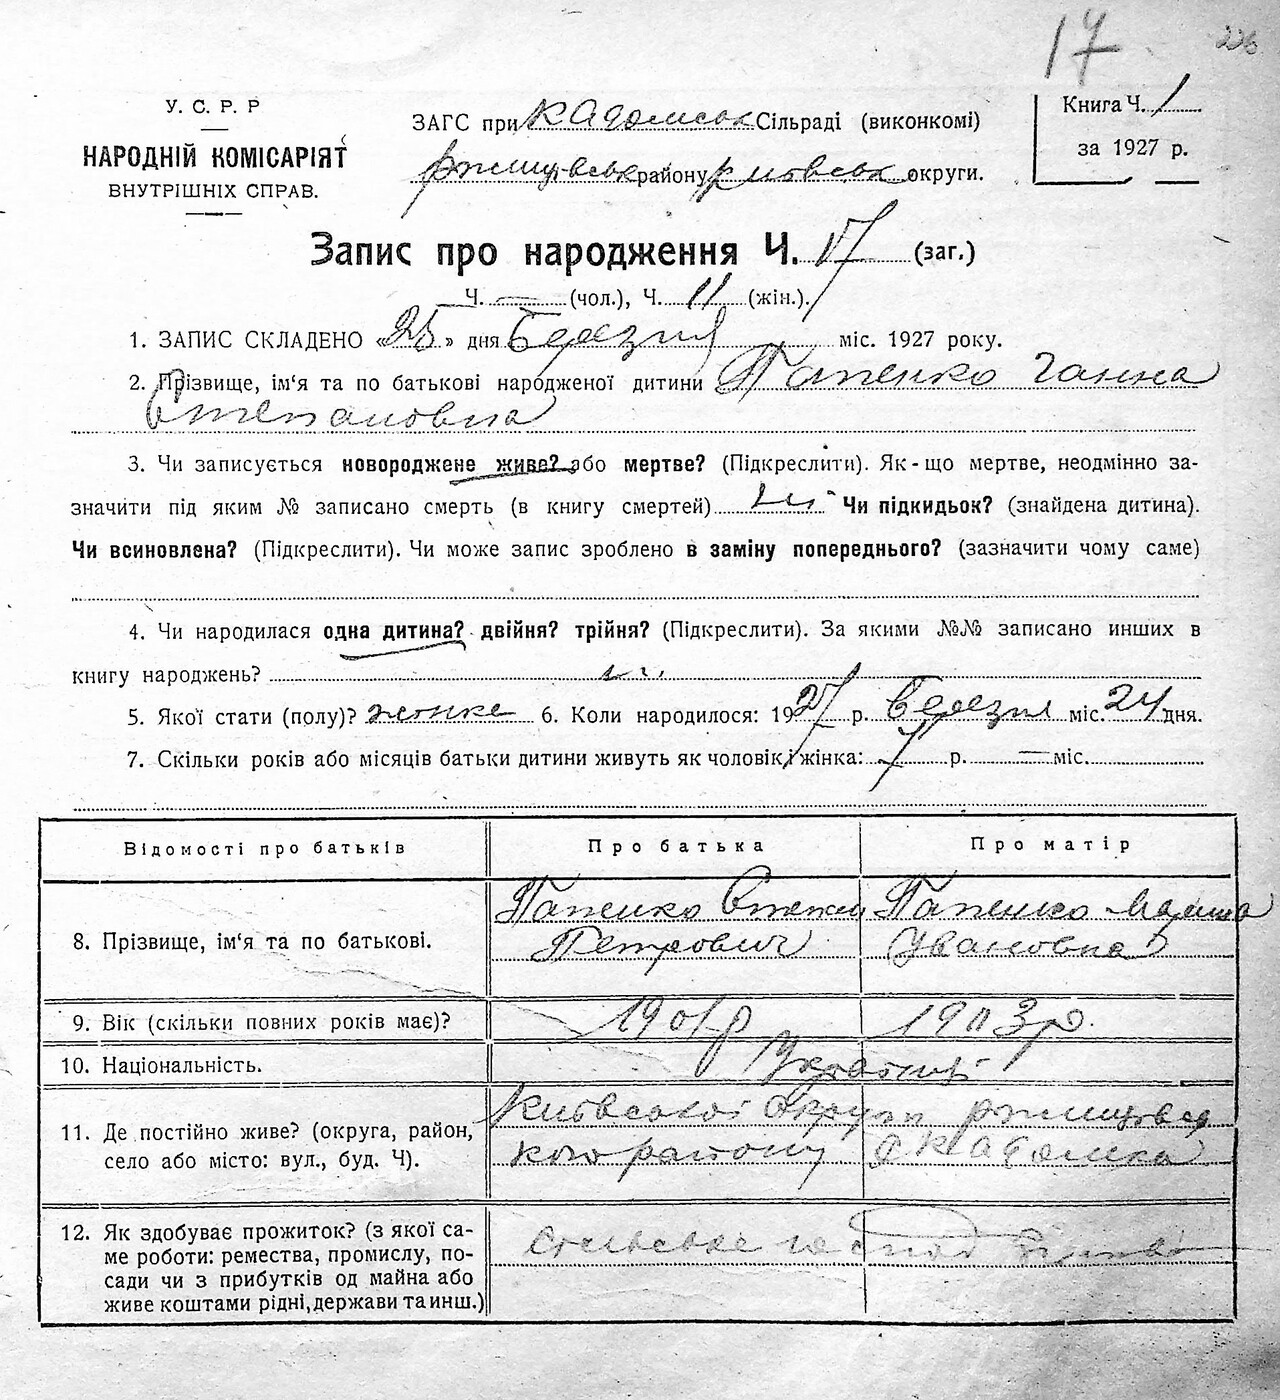 17 226
У. С. Р. Р
НАРОДНІЙ КОМІСАРІЯТ
ВНУТРІШНІХ СПРАВ.
ЗАГС при Кадомськ Сільраді (виконкомі)
Ржищівськ району Київськ округи.
Книга Ч. 1
за 1927 р.
Запис про народження Ч. 17 (заг.)
Ч. — (чол.), Ч. 11 (жін.).
1. ЗАПИС СКЛАДЕНО «25» дня Березня міс. 1927 року.
2. Прізвище, ім‘я та по батькові народженої дитини Папенко Ганна
Степановна
3. Чи записується новороджене живе? або мертве? (Підкреслити). Як-що мертве, неодмінно за-
значити під яким № записано смерть (в книгу смертей) ні Чи підкидьок? (знайдена дитина).
Чи всиновлена? (Підкреслити). Чи може запис зроблено в заміну попереднього? (зазначити чому саме)
4. Чи народилася одна дитина? двійня? трійня? (Підкреслити). За якими №№ записано инших в
книгу народжень? ні
5. Якої стати (полу)? жіноче 6. Коли народилося: 1927 р. Березня міс. 24 дня.
7. Скільки років або місяців батьки дитини живуть як чоловік і жінка: р. — міс.
Відомості про батьків Про батька Про матір
8. Прізвище, ім‘я та по батькові. Папенко Степан Папенко Марина
Петрович Ивановна
9. Вік (скільки повних років має)? 1901 р 1903 р.
10. Національність. Українці
11. Де постійно живе? (округа, район,
село або місто: вул., буд. Ч). Київської округи Ржищівсь
кого району с Кадомка
12. Як здобуває прожиток? (з якої са-
ме роботи: ремества, промислу, по-
сади чи з прибутків од майна або
живе коштами рідні, держави та инш.) Сільське господ